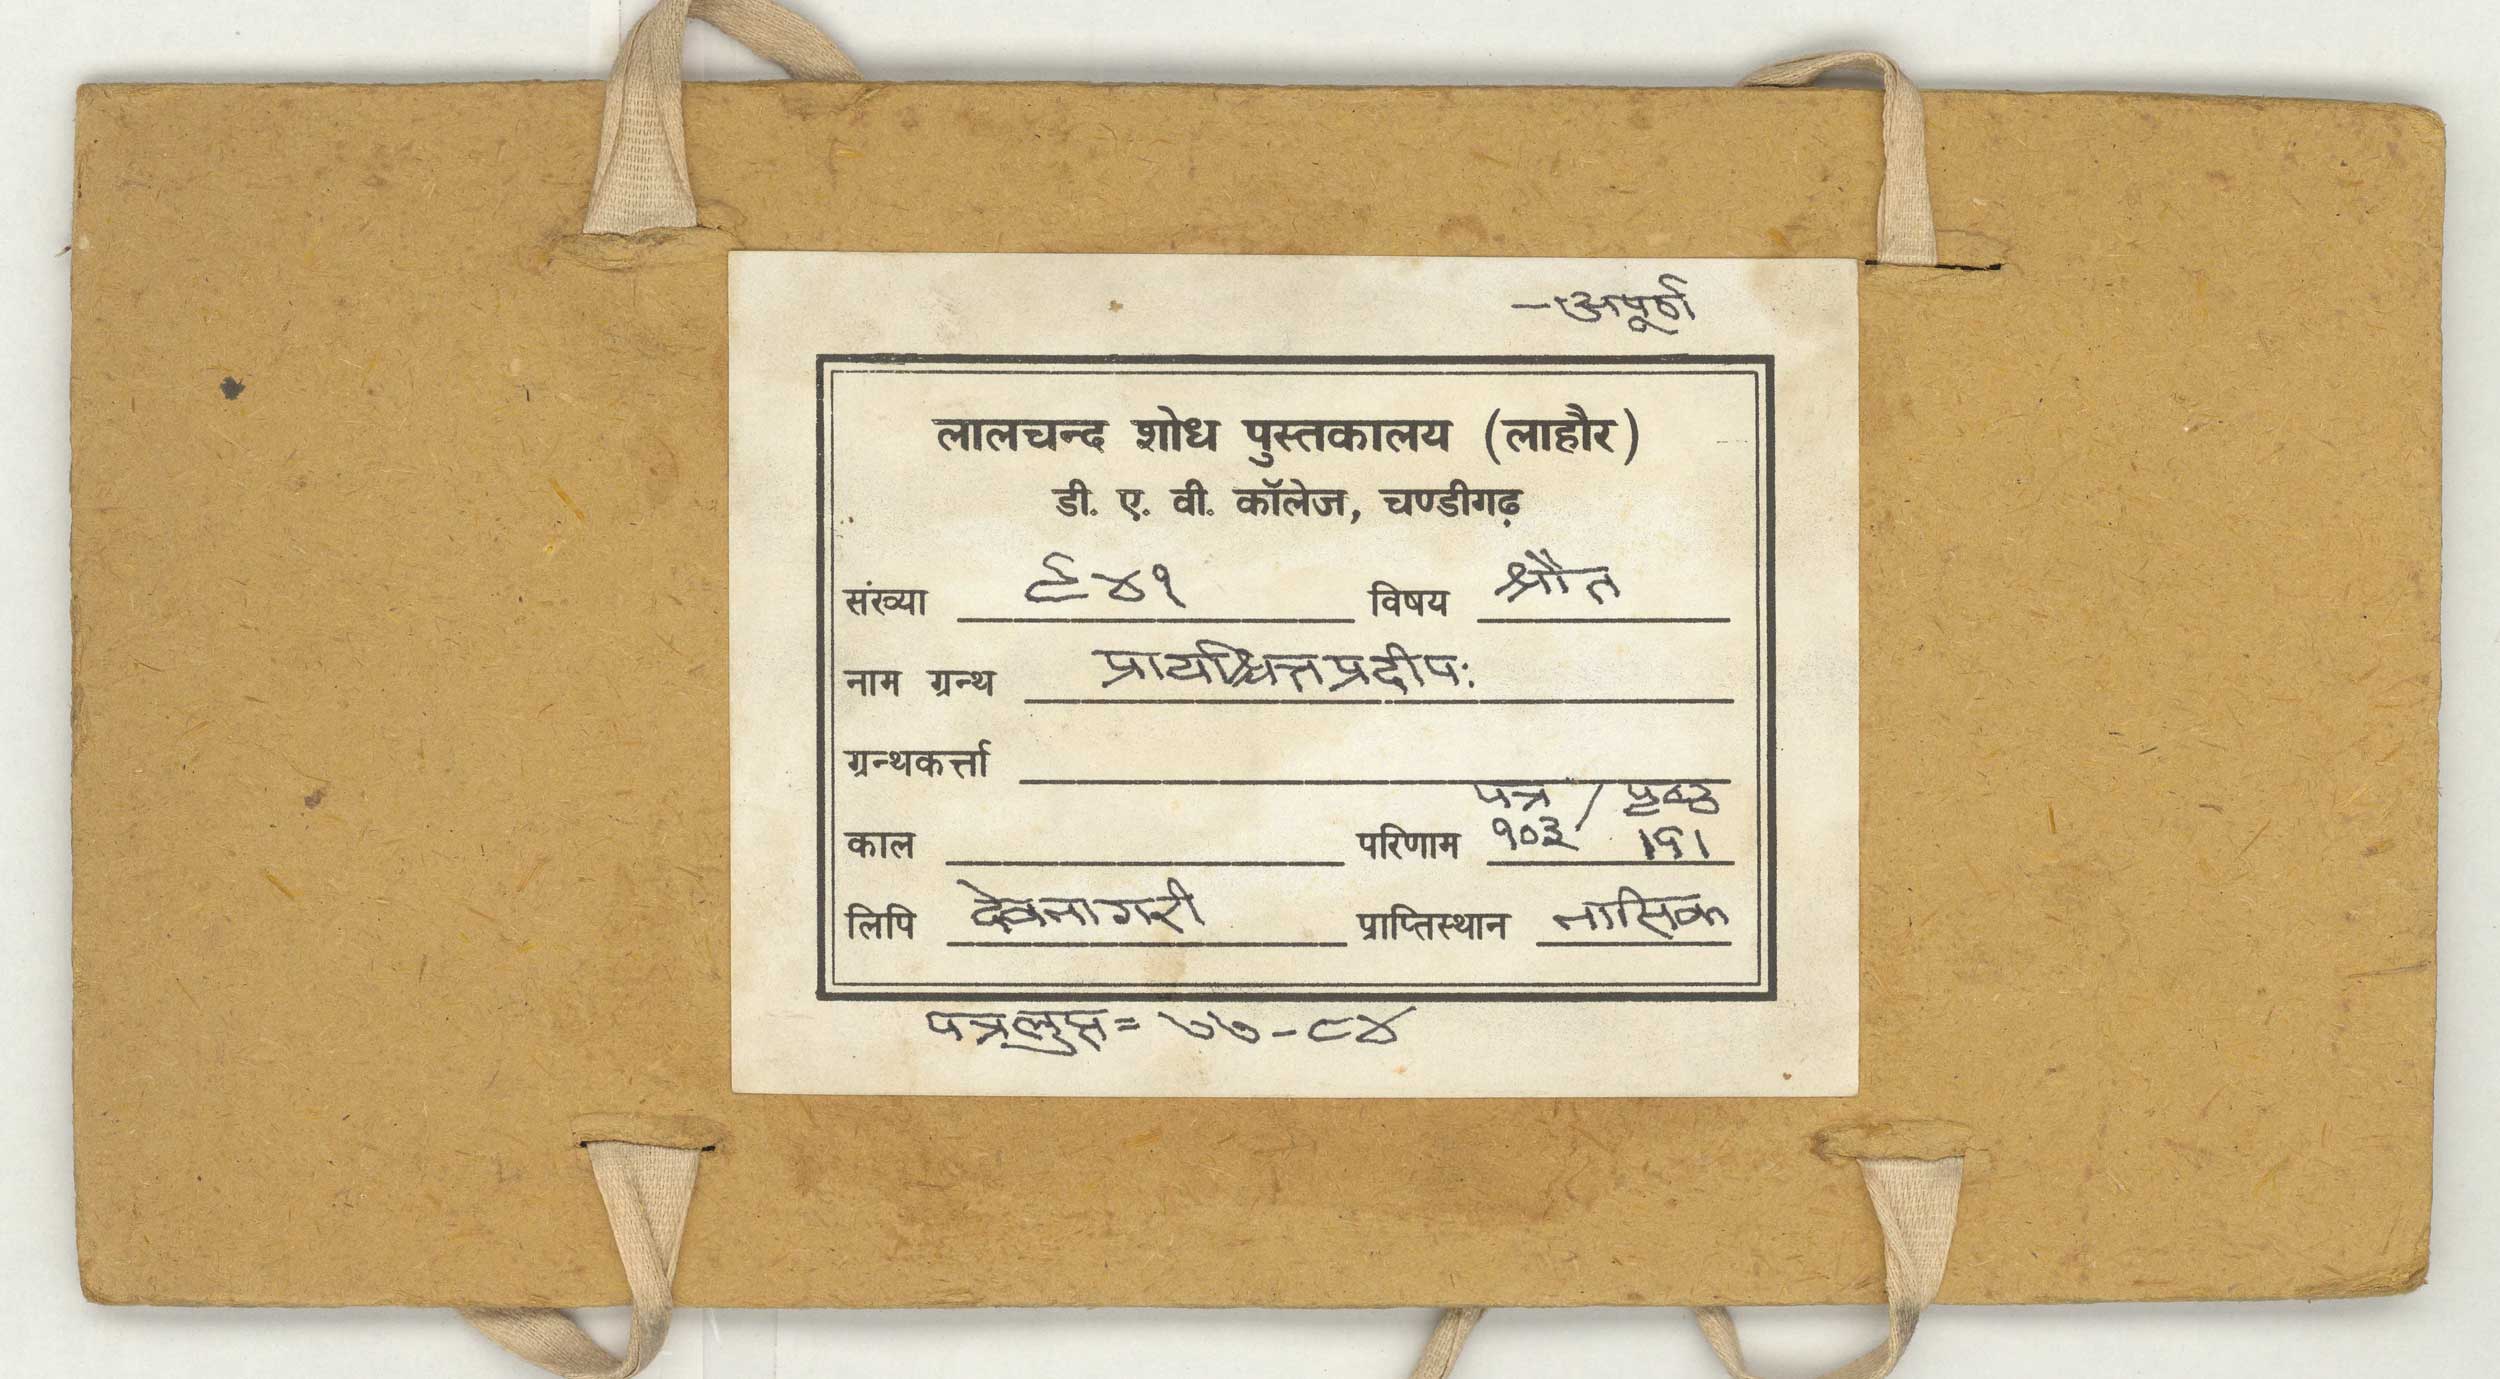 -अपूर्ण
लालचन्द शोध पुस्तकालय (लाहौर)
डी. ए. वी. कॉलेज, चण्डीगढ़
संख्या ९४१ विषय श्रौत
नाम ग्रन्थ प्रायश्चित्तप्रदीपः
ग्रन्थकर्त्ता
पत्र / पृष्ठ
काल परिणाम १०३ / १९१
लिपि देवनागरी प्राप्तिस्थान नासिक
पत्रलुप्त = ७७-८४